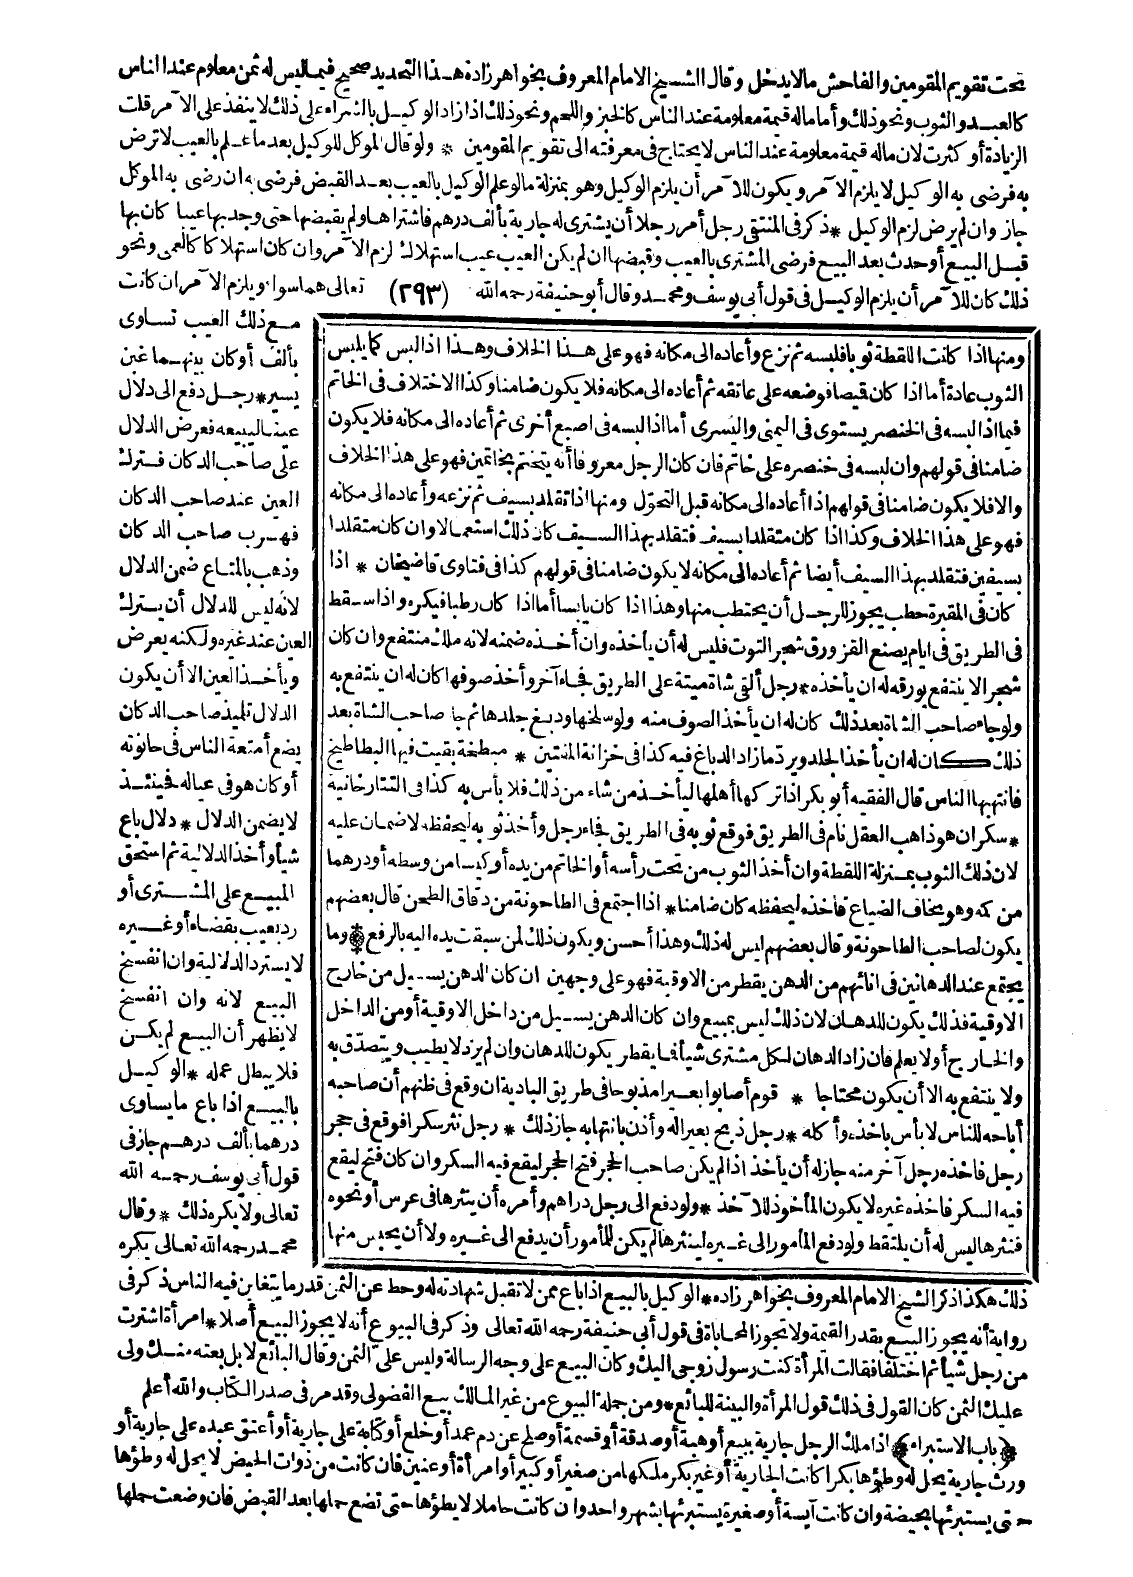 تحت تقويم المقومين والفاحش مالا يدخل وقال الشيخ الامام المعروف بخواهر زاده هذا التحديد صحيح فيما ليس له ثمن معلوم عند الناس
كالعبد والثوب ونحو ذلك وأما ماله قيمة معلومة عند الناس كالخبز واللحم ونحو ذلك اذا زاد الوكيل بالشراء على ذلك لا ينفذ على الآمر قلت
الزيادة أو كثرت لان ماله قيمة معلومة عند الناس لا يحتاج فى معرفته الى تقويم المقومين * ولو قال الموكل للوكيل بعد ما علم بالعيب لا ترض
به فرضى به الوكيل لا يلزم الآمر ويكون للآمر أن يلزم الوكيل وهو بمنزلة مالو علم الوكيل بالعيب بعد القبض فرضى به ان رضى به الموكل
جاز وان لم يرض لزم الوكيل * ذكر فى المنتقى رجل أمر رجلا أن يشترى له جارية بألف درهم فاشتراها ولم يقبضها حتى وجد بها عيبا كان بها
قبل البيع أو حدث بعد البيع فرضى المشترى بالعيب وقبضها ان لم يكن العيب عيب استهلاك لزم الآمر وان كان استهلاكا كالعمى ونحو
ذلك كان للآمر أن يلزم الوكيل فى قول أبى يوسف ومحمد وقال أبو حنيفة رحمه الله (٢٩٣) تعالى هما سواء ويلزم الآمر ان كانت
مع ذلك العيب تساوى
بألف أو كان بينهما غبن
يسير * رجل دفع الى دلال
عينا ليبيعه فعرض الدلال
على صاحب الدكان فترك
العين عند صاحب الدكان
فهرب صاحب الدكان
وذهب بالمتاع ضمن الدلال
لانه ليس للدلال أن يترك
العين عند غيره ولكنه يعرض
ويأخذ العين الا أن يكون
الدلال تلميذ صاحب الدكان
يضع أمتعة الناس فى حانوته
أو كان هو فى عياله فحينئذ
لا يضمن الدلال * دلال باع
شيأ وأخذ الدلالية ثم استحق
المبيع على المشترى أو
رد بعيب بقضاء أو غيره
لا يسترد الدلالية وان انفسخ
البيع لانه وان انفسخ
لا يظهر أن البيع لم يكن
فلا يبطل عمله * الوكيل
بالبيع اذا باع ما يساوى
درهما بألف درهم جاز فى
قول أبى يوسف رحمه الله
تعالى ولا يكره ذلك * وقال
محمد رحمه الله تعالى يكره
ومنها اذا كانت اللقطة ثوبا فلبسه ثم نزع وأعاده الى مكانه فهو على هذا الخلاف وهذا اذا لبس كما يلبس
الثوب عادة أما اذا كان قميصا فوضعه على عاتقه ثم أعاده الى مكانه فلا يكون ضامنا وكذا الاختلاف فى الخاتم
فيما اذا لبسه فى الخنصر يستوى فى اليمنى واليسرى أما اذا لبسه فى اصبع أخرى ثم أعاده الى مكانه فلا يكون
ضامنا فى قولهم وان لبسه فى خنصره على خاتم فان كان الرجل معروفا أنه يتختم بخاتمين فهو على هذا الخلاف
والا فلا يكون ضامنا فى قولهم اذا أعاده الى مكانه قبل التحوّل ومنها اذا تقلد بسيف ثم نزعه وأعاده الى مكانه
فهو على هذا الخلاف وكذا اذا كان متقلدا بسيف فتقلد بهذا السيف كان ذلك استعمالا وان كان متقلدا
بسيفين فتقلد بهذا السيف أيضا ثم أعاده الى مكانه لا يكون ضامنا فى قولهم كذا فى فتاوى قاضيخان * اذا
كان فى المقبرة حطب يجوز للرجل أن يحتطب منها وهذا اذا كان يابسا أما اذا كان رطبا فيكره واذا سقط
فى الطريق فى ايام يصنع القز ورق شجر التوت فليس له أن يأخذه وان أخذه ضمنه لانه ملك منتفع وان كان
شجر الا ينتفع بورقه له ان يأخذه * رجل ألقى شاة ميتة على الطريق فجاء آخر وأخذ صوفها كان له ان ينتفع به
ولو جاء صاحب الشاة بعد ذلك كان له ان يأخذ الصوف منه ولو سلخها ودبغ جلدها ثم جاء صاحب الشاة بعد
ذلك كان له ان يأخذ الجلد ويرد ما زاد الدباغ فيه كذا فى خزانة المفتين * مبطخة بقيت فيها البطاطيخ
فانتهبها الناس قال الفقيه أبو بكر اذا تركها أهلها ليأخذ من شاء من ذلك فلا بأس به كذا فى التتارخانية
* سكران هو ذاهب العقل نام فى الطريق فوقع ثوبه فى الطريق فجاء رجل وأخذ ثوبه ليحفظه لا ضمان عليه
لان ذلك الثوب بمنزلة اللقطة وان أخذ الثوب من تحت رأسه أو الخاتم من يده أو كيسا من وسطه أو درهما
من كمه وهو يخاف الضياع فأخذه ليحفظه كان ضامنا * اذا اجتمع فى الطاحونة من دقاق الطحن قال بعضهم
يكون لصاحب الطاحونة وقال بعضهم ليس له ذلك وهذا أحسن ويكون ذلك لمن سبقت يده اليه بالرفع * وما
يجتمع عند الدهانين فى انائهم من الدهن يقطر من الاوقية فهو على وجهين ان كان الدهن يسيل من خارج
الاوقية فذلك يكون للدهان لان ذلك ليس بمبيع وان كان الدهن يسيل من داخل الاوقية أو من الداخل
والخارج أو لا يعلم فان زاد الدهان لكل مشترى شيأ فما يقطر يكون للدهان وان لم يزد لا يطيب ويتصدّق به
ولا ينتفع به الا أن يكون محتاجا * قوم أصابوا بعيرا مذبوحا فى طريق البادية ان وقع فى ظنهم أن صاحبه
أباحه للناس لا بأس باخذه وأكله * رجل ذبح بعيرا له وأذن بانتهابه جاز ذلك * رجل نثر سكرا فوقع فى حجر
رجل فأخذه رجل آخر منه جاز له أن يأخذ اذا لم يكن صاحب الحجر فتح الحجر ليقع فيه السكر وان كان فتح ليقع
فيه السكر فاخذه غيره لا يكون المأخوذ للآخذ * ولو دفع الى رجل دراهم وأمره أن ينثرها فى عرس أو نحوه
فنثرها ليس له أن يلتقط ولو دفع المأمور الى غيره لينثرها لم يكن للمأمور أن يدفع الى غيره ولا أن يحبس منها
ذلك هكذا ذكر الشيخ الامام المعروف بخواهر زاده * الوكيل بالبيع اذا باع ممن لا تقبل شهادته له وحط عن الثمن قدر ما يتغابن فيه الناس ذكر فى
رواية أنه يجوز البيع بقدر القيمة ولا تجوز المحاباة فى قول أبى حنيفة رحمه الله تعالى وذكر فى البيوع أنه لا يجوز البيع أصلا * امرأة اشترت
من رجل شيأ ثم اختلفا فقالت المرأة كنت رسول زوجى اليك وكان البيع على وجه الرسالة وليس علىّ الثمن وقال البائع لا بل بعته منك ولى
عليك الثمن كان القول فى ذلك قول المرأة والبينة للبائع * ومن جملة البيوع من غير المالك بيع الفضولى وقد مر فى صدر الكتاب والله أعلم
﴿باب الاستبراء﴾ اذا ملك الرجل جارية ببيع أو هبة أو صدقة أو قسمة أو صلح عن دم عمد أو خلع أو كتابة على جارية أو أعتق عبده على جارية أو
ورث جارية يحل له وطؤها بكرا كانت الجارية أو غير بكر ملكها من صغير أو كبير أو امرأة أو عنين فان كانت من ذوات الحيض لا يحل له وطؤها
حتى يستبرئها بحيضة وان كانت آيسة أو صغيرة يستبرئها بشهر واحد وان كانت حاملا لا يطؤها حتى تضع حملها بعد القبض فان وضعت حملها